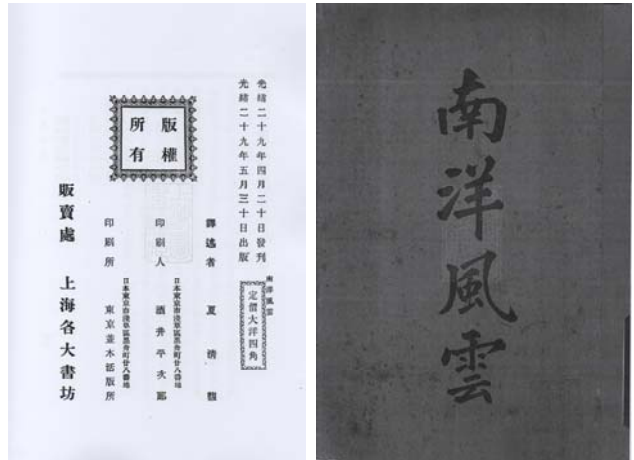 光緒二十九年四月二十日發刊
光緒二十九年五月三十日出版
南洋風雲
定價大洋四角
版權
所有
譯述者 夏清馥
日本東京市淺草區黑舟町廿八番地
印刷人 酒井平次郎
日本東京市淺草區黑舟町廿八番地
印刷所 東京並木活版所
販賣處 上海各大書坊
南洋風雲